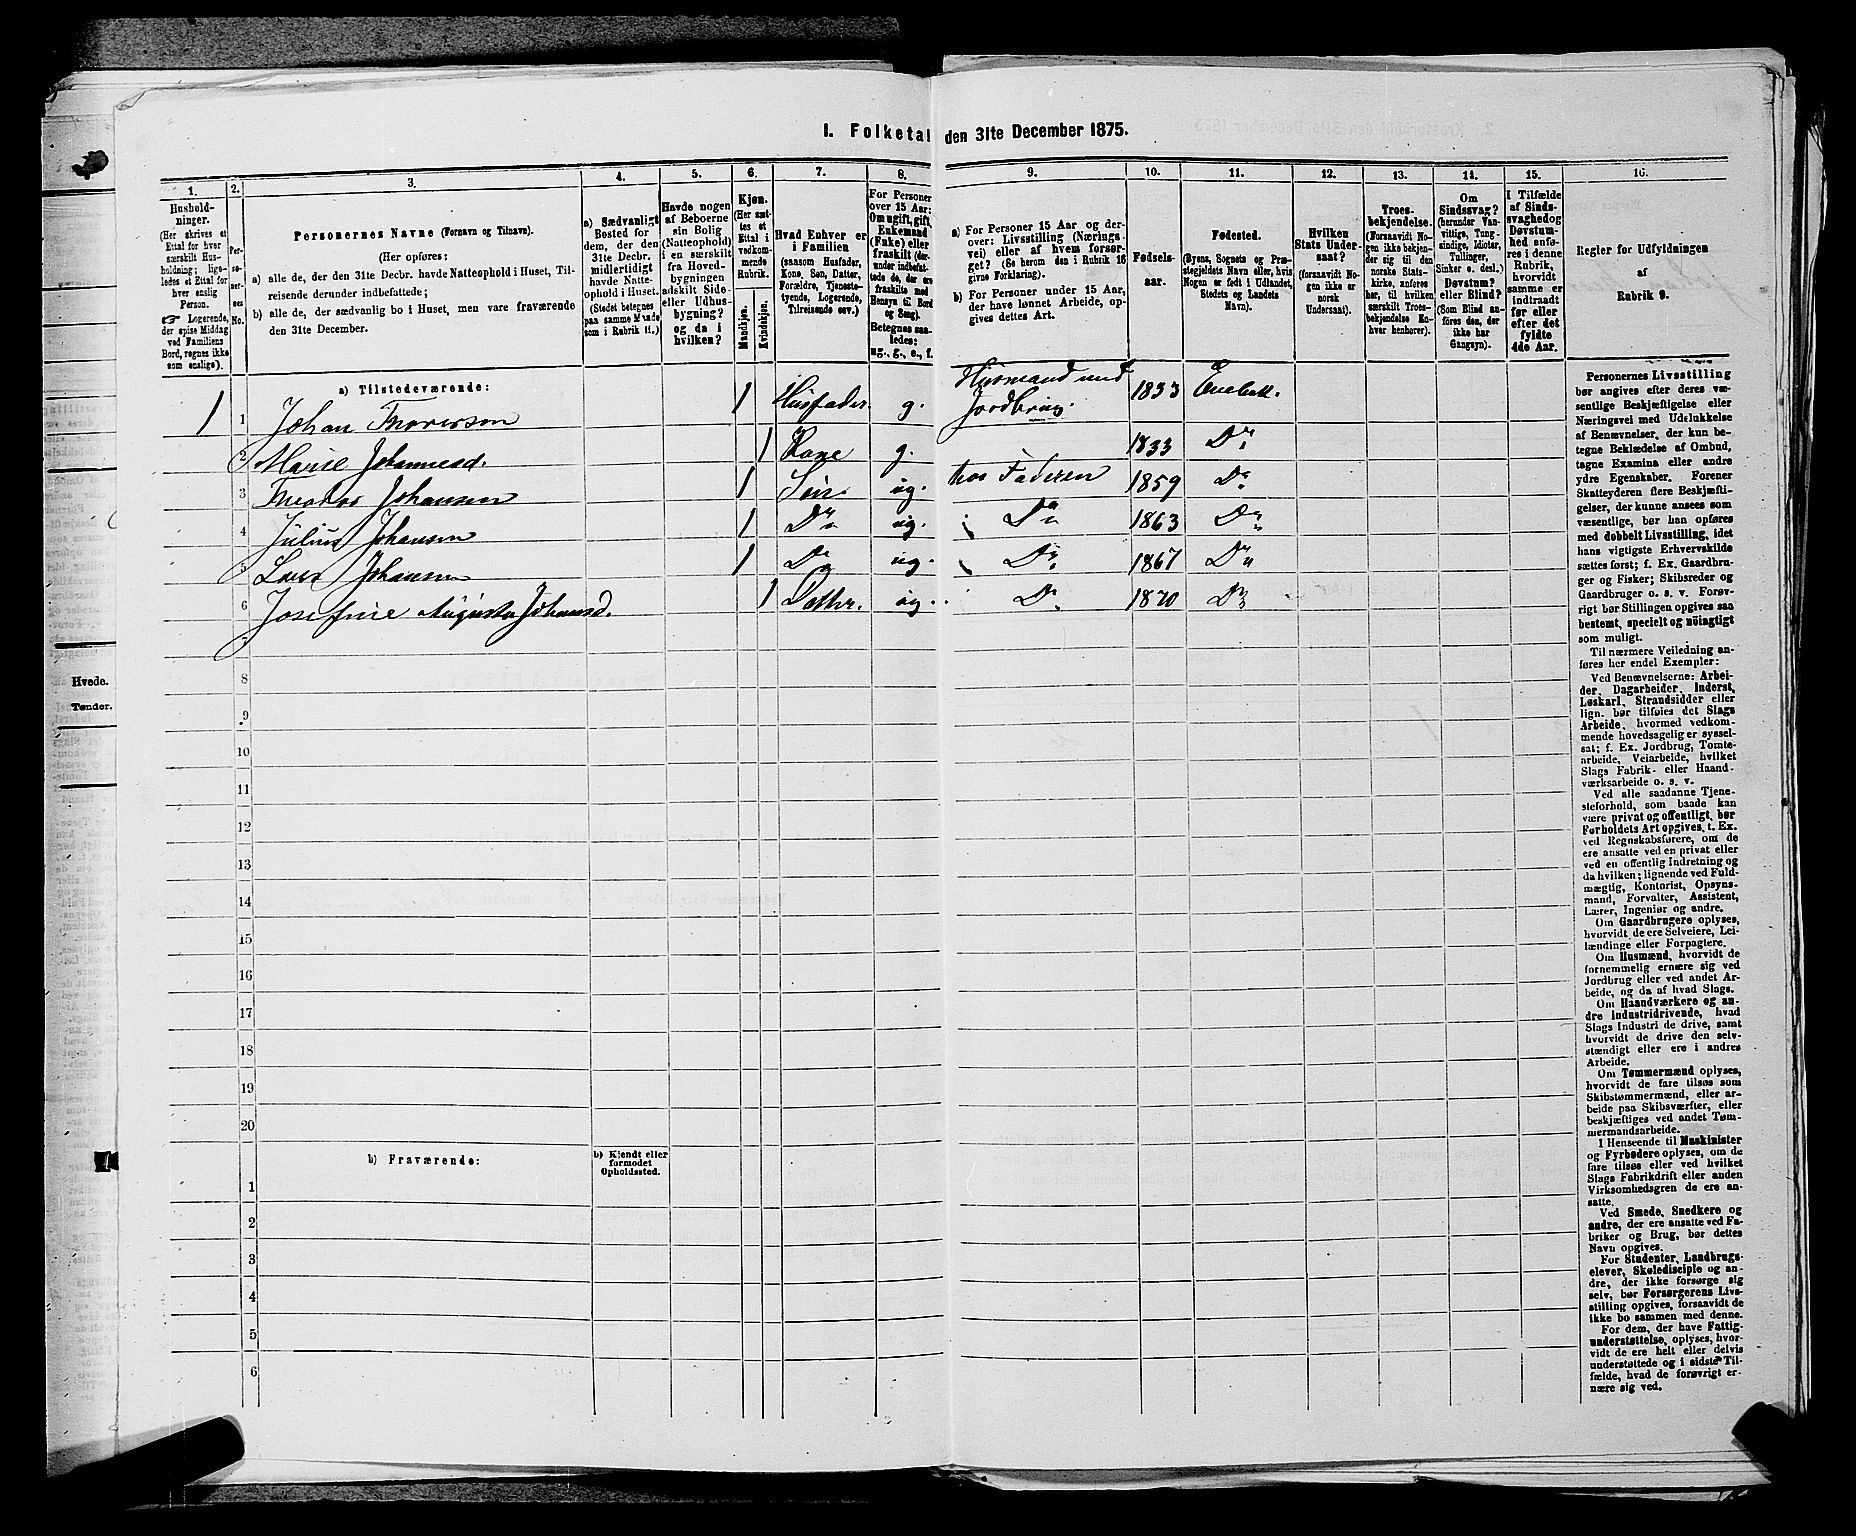 1. Folketal den 31te December 1875.
1.
2.
3.
4.
5.
6.
7.
8.
9.
10.
11.
12.
13.
14.
15.
16.
Hushold-
ninger.
(Her skrives et
Ettal for hver
særskilt Hus-
holdning; lige-
ledes et Ettal for
hver enslig
Person.
☞ Logerende,
der spise Middag
ved Familiens
Bord, regnes ikke
som enslige).
Per-
so-
ner-
nes
No.
Personernes Navne (Fornavn og Tilnavn).
(Her opføres:
a) alle de, der den 31te Decbr. havde Natteophold i Huset, Til-
reisende derunder indbefattede;
b) alle de, der sædvanlig bo i Huset, men vare fraværende
den 31te December.
a) Sædvanligt
Bosted for
dem, der den
31te Decbr.
midlertidigt
havde Natte-
ophold i Huset.
(Stedet betegnes
paa samme Maade
som i Rubrik 11.)
Havde nogen
af Beboerne
sin Bolig
(Natteophold)
i en særskilt
fra Hoved-
bygningen
adskilt Side-
eller Udhus-
bygning?
og da i
hvilken?
Kjøn.
(Her sæt-
tes et
Ettal i
vedkom-
mende
Rubrik.
Mandkjøn.
Kvindekjøn.
Hvad Enhver er
i Familien
(saasom Husfader,
Kone, Søn, Datter,
Forældre, Tjeneste-
tyende, Logerende,
Tilreisende osv.)
For Personer
over 15 Aar:
Om ugift, gift,
Enkemand
(Enke) eller
fraskilt (der-
under indbefat-
tede de, der ere
fraskilte med
Hensyn til Bord
og Seng).
Betegnes saa-
ledes:
ug., g., e., f.
a) For Personer 15 Aar og der-
over: Livsstilling (Nærings-
vei) eller af hvem forsør-
get? (Se herom den i Rubrik 16
givne Forklaring).
b) For Personer under 15 Aar,
der have lønnet Arbeide, op-
gives dettes Art.
Fødsels-
aar.
Fødested.
(Byens, Sognets og Præ-
stegjeldets Navn eller, hvis
Nogen er født i Udlandet,
Stedets og Landets
Navn).
Hvilken
Stats Under-
saat?
(forsaavidt No-
gen ikke er
norsk
Undersaat).
Troes-
bekjendelse.
(Forsaavidt No-
gen ikke bekjen-
der sig til den
norske Stats-
kirke, anføres
her, til hvilken
særskilt Troes-
bekjendelse En-
hver henhører).
Om
Sindssvag?
(herunder Van-
vittige, Tung-
sindige, Idioter,
Tullinger,
Sinker o. desl.)
Døvstum?
eller Blind?
(Som Blind an-
føres den, der
ikke har
Gangsyn).
I Tilfælde
af Sinds-
svaghed og
Døvstum-
hed anfø-
res i denne
Rubrik,
hvorvidt
samme er
indtraadt
før eller
efter det
fyldte
4de Aar.
Regler for Udfyldningen
af
Rubrik 9.
a) Tilstedeværende:
1 1 Johan Thoresson 1 Husfader g. Husmand med Jordbrug. 1833 Enebak.
2 Marie Johannesd. 1 Kone g. 1833 Do
3 Theodor Johansen 1 Søn ug. hos Faderen 1859 Do
4 Julius Johansen 1 Do ug. Do 1863 Do
5 Lars Johansen 1 Do ug. Do 1867 Do
6 Josefine Augusta Johansd. 1 Datter ug. Do 1870 Do
7
8
9
10
11
12
13
14
15
16
17
18
19
20
b) Fraværende:
b) Kjendt eller
formodet
Opholdssted.
1
2
3
4
5
6
Personernes Livsstilling
bør angives efter deres væ-
sentlige Beskjæftigelse eller
Næringsvei med Udelukkelse
af Benævnelser, der kun be-
tegne Beklædelse af Ombud,
tagne Examina eller andre
ydre Egenskaber. Forener
Skatteyderen flere Beskjæfti-
gelser, der kunne ansees som
væsentlige, bør han opføres
med dobbelt Livsstilling, idet
hans vigtigste Erhvervskilde
sættes først; f. Ex. Gaardbru-
ger og Fisker; Skibsreder og
Gaardbruger o. s. v. Forøv-
rigt bør Stillingen opgives saa
bestemt, specielt og nöiagtigt
som muligt.
Til nærmere Veiledning an-
føres her endel Exempler:
Ved Benævnelserne: Arbei-
der, Dagarbeider, Inderst,
Løskarl, Strandsidder eller
lign. bør tilføies det Slags
Arbeide, hvormed vedkom-
mende hovedsagelig er syssel-
sat; f. Ex. Jordbrug, Tomte-
arbeide, Veiarbeide, hvilket
Slags Fabrik- eller Haand-
værksarbeide o. s. v.
Ved alle saadanne Tjene-
steforhold, som baade kan
være privat og offentligt, bør
Forholdets Art opgives, t. Ex.
ved Regnskabsførere, om de
ere ansatte ved en privat eller
ved en offentlig Indretning og
da hvilken; lignende ved Fuld-
mægtig, Kontorist, Opsyns-
mand, Forvalter, Assistent,
Lærer, Ingeniør og andre.
Om Gaardbrugere oplyses,
hvorvidt de ere Selveiere, Lei-
lændinge eller Forpagtere.
Om Husmænd, hvorvidt de
fornemmelig ernære sig ved
Jordbrug eller ved andet Ar-
beide, og da af hvad Slags.
Om Haandværkere og an-
dre Industridrivende, hvad
Slags Industri de drive, samt
hvorvidt de drive den selv-
stændigt eller ere i andres
Arbeide.
Om Tømmermænd oplyses,
hvorvidt de fare tilsøs som
Skibstømmermænd, eller ar-
beide paa Skibsværfter, eller
beskjæftiges ved andet Tøm-
mermandsarbeide.
I Henseende til Maskinister
og Fyrbødere oplyses, om de
fare tilsøs eller ved hvilket
Slags Fabrikdrift eller anden
Virksomhedsgren de ere an-
satte.
Ved Smede, Snedkere og
andre, der ere ansatte ved Fa-
briker og Brug, bør dettes
Navn opgives.
For Studenter, Landbrugs-
elever, Skoledisciple og an-
dre, der ikke forsørge sig
selv, bør Forsørgerens Livs-
stilling opgives, forsaavidt de
ikke bo sammen med denne.
For dem, der have Fattig-
understøttelse, oplyses, hvor-
vidt de ere helt eller delvis
understøttede og i sidste Til-
fælde, hvad de forøvrigt er-
nære sig ved.
Hvede.
Tønder.